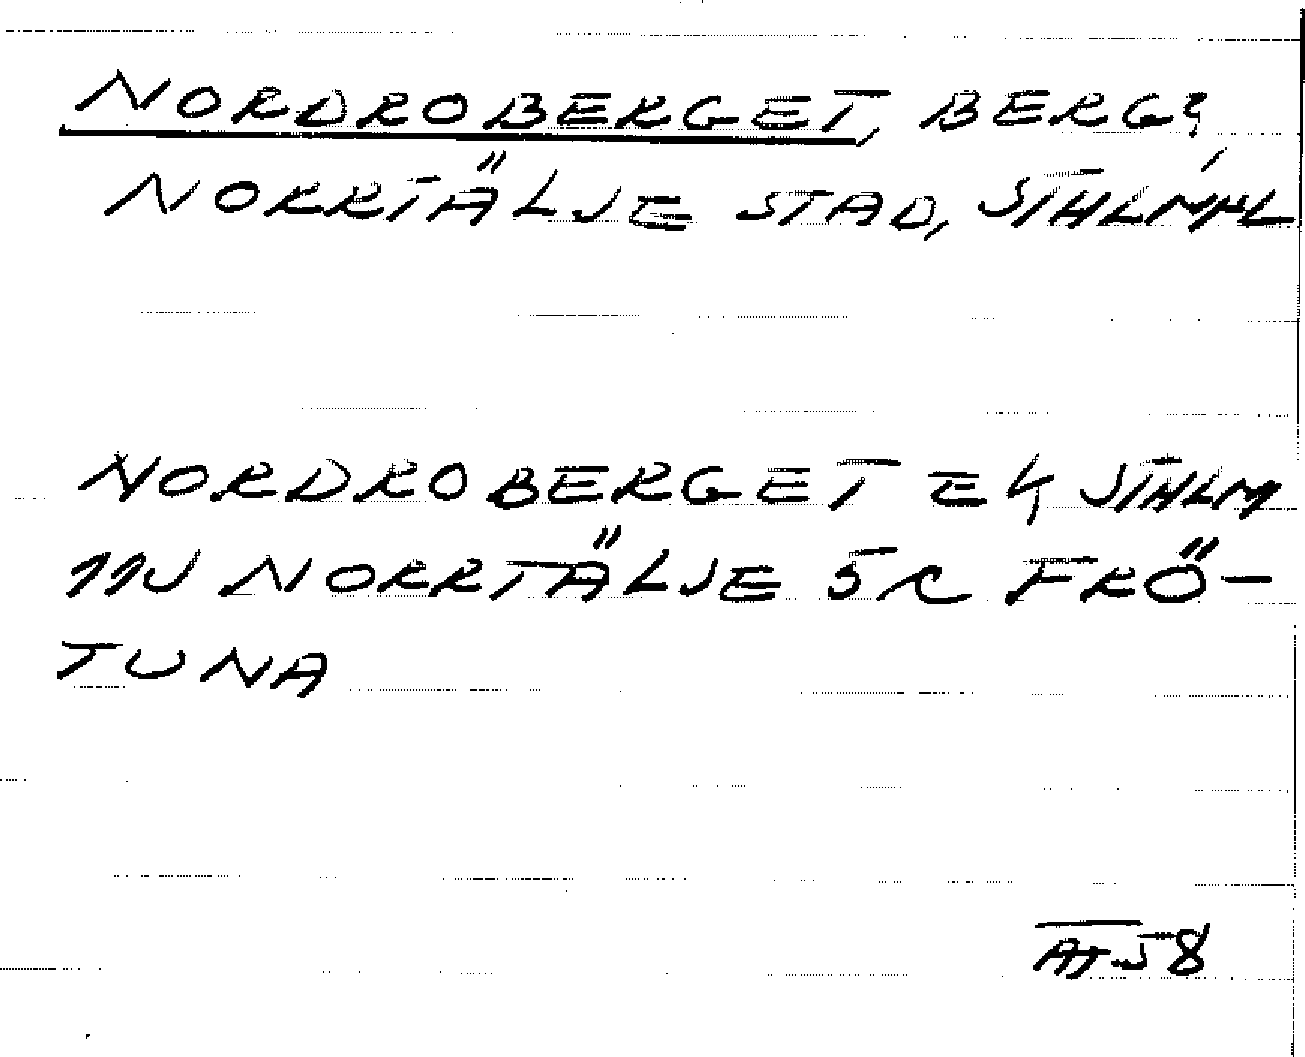 NORDROBERGET, BERG,
NORRTÄLJE STAD, STHLM
NORDROBERGET EK STHLM
11J NORRTÄLJE 5 C FRÖ-
TUNA
AT 58